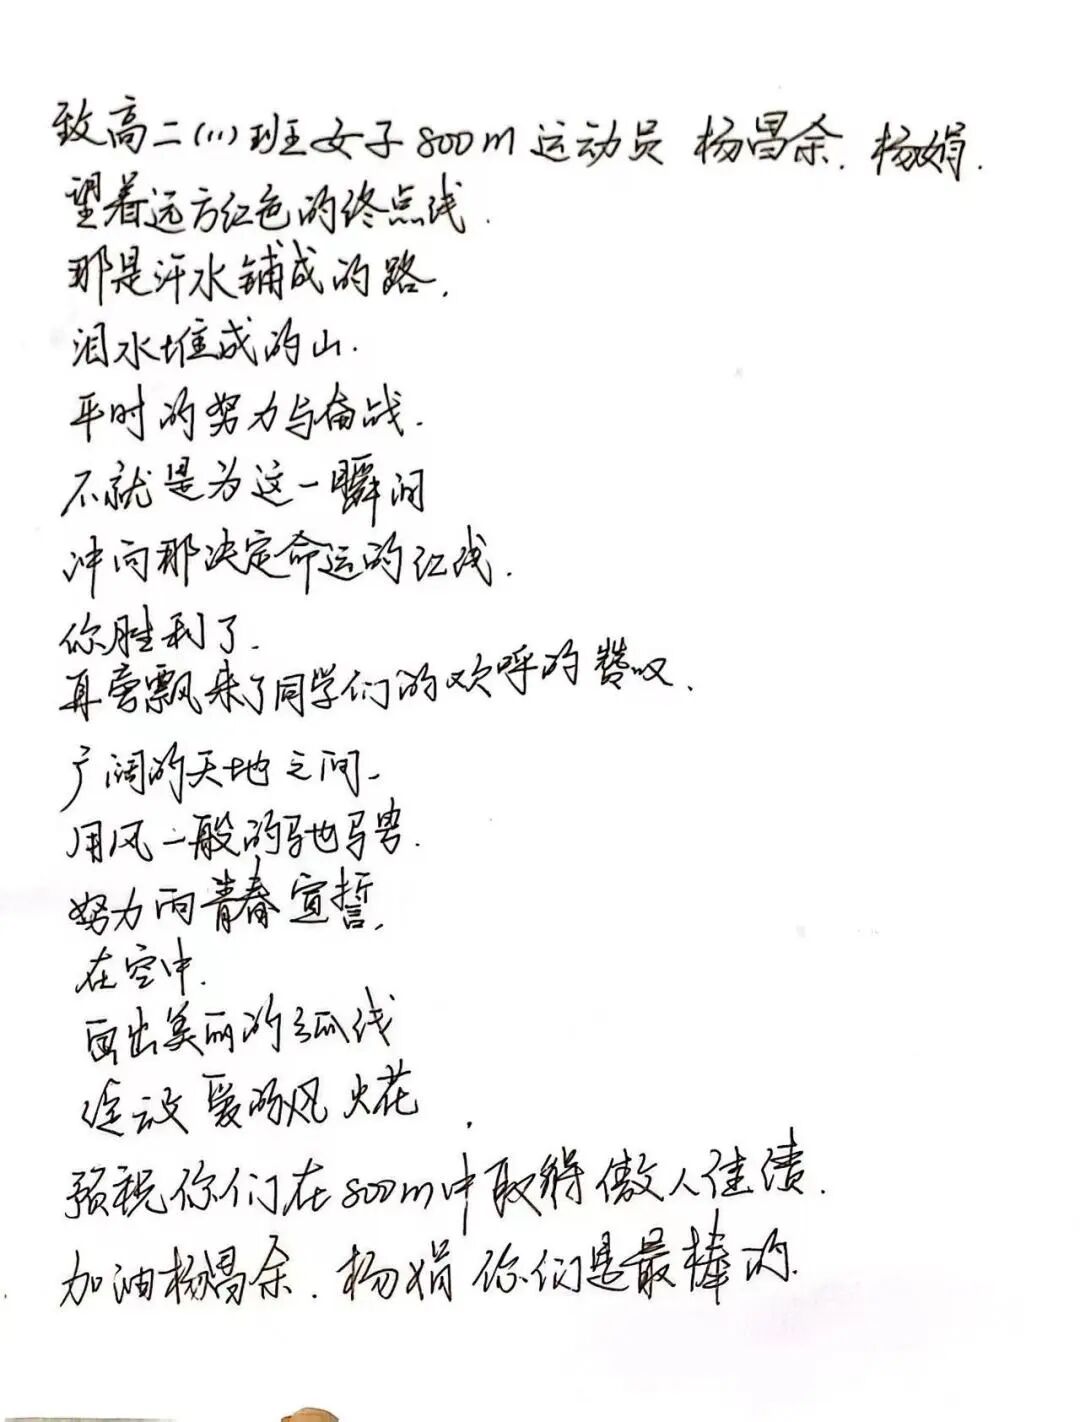 致高二(11)班女子800m运动员 杨昌余.杨娟.
望着远方红色的终点线.
那是汗水铺成的路,
泪水堆成的山.
平时的努力与奋战.
不就是为这一瞬间
冲向那决定命运的红线.
你胜利了.
耳旁飘来了同学们的欢呼的赞叹.
广阔的天地之间.
用风一般的驰骋.
努力而青春宣誓,
在空中.
画出美丽的弧线
爱的风火花.
预祝你们在800m中取得傲人佳绩.
加油杨昌余.杨娟 你们是最棒的.